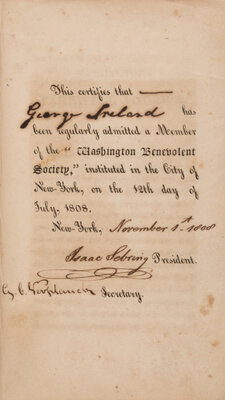 This certifies that —
George Ireland has
been regularly admitted a Member
of the "Washington Benevolent
Society," instituted in the City of
New-York, on the 12th day of
July, 1808.
New-York, November 1st 1808
Isaac Sebring President.
G. C. Verplanck Secretary.